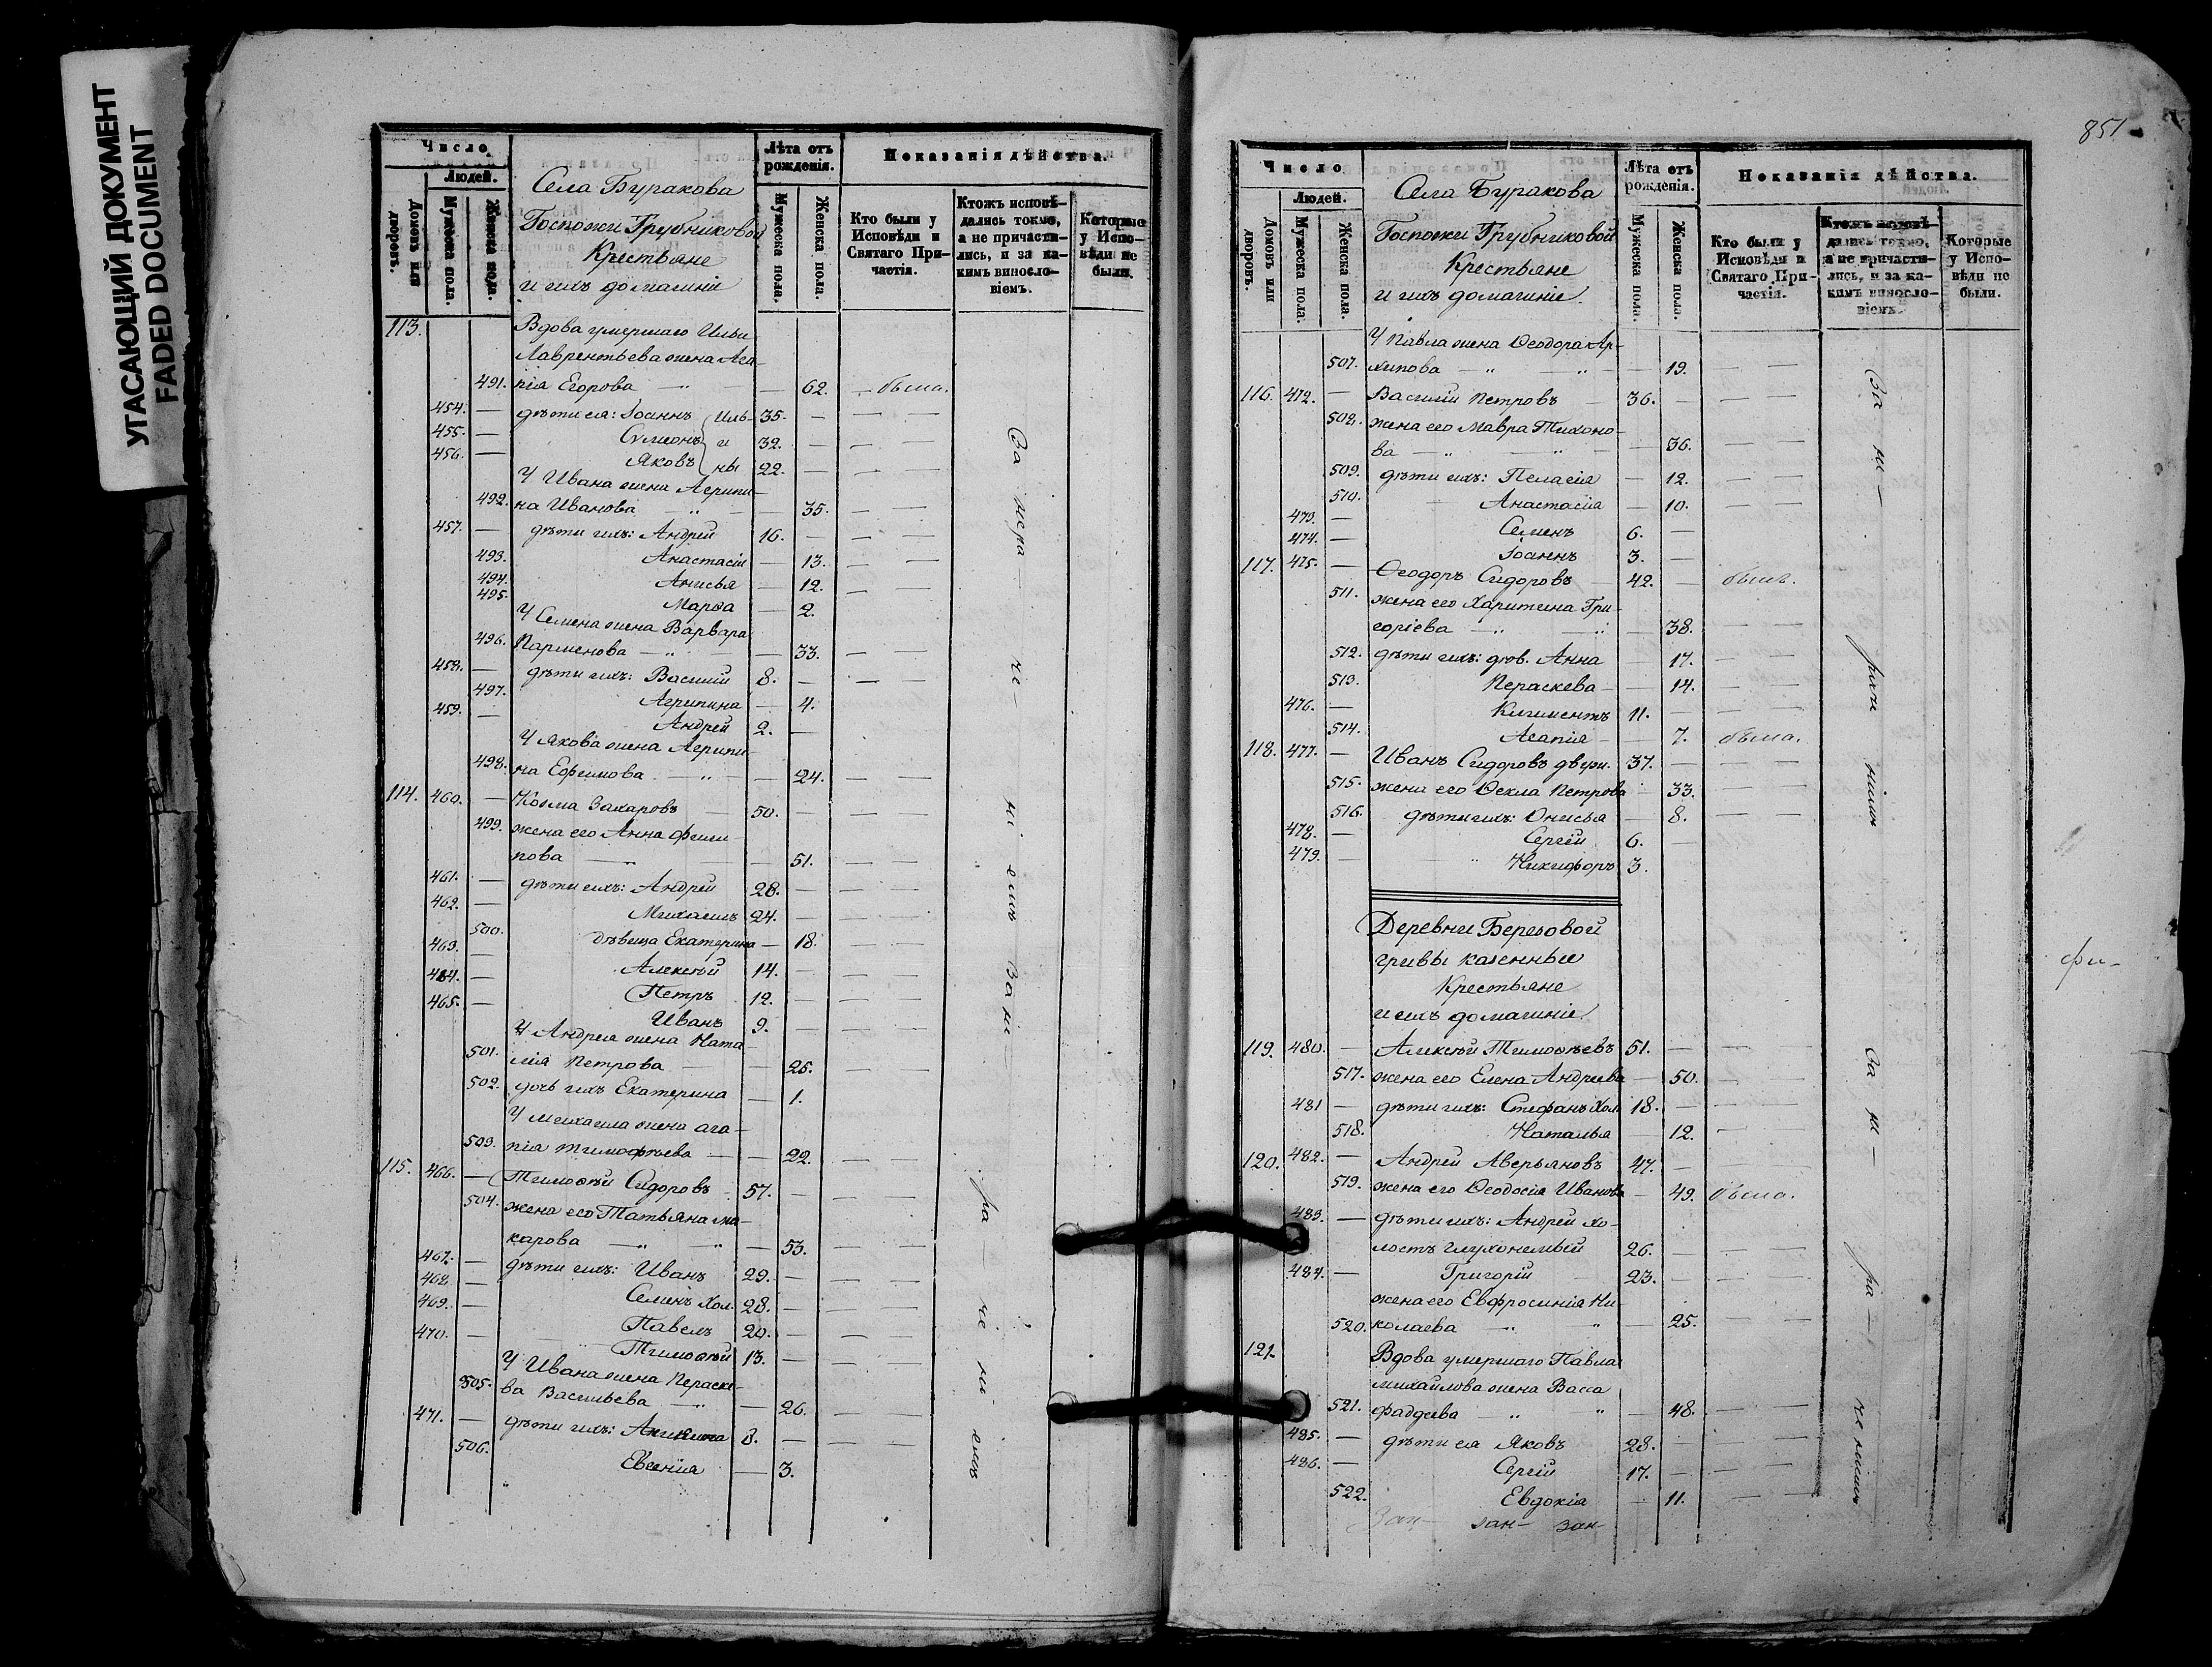 УГАСАЮЩИЙ ДОКУМЕНТ
FADED DOCUMENT
Число
Людей.
Домовъ или дворовъ.
Мужеска пола.
Женска пола.
Села Буракова
Госпожи Трубниковой
Крестьяне
и ихъ домашніе
Лѣта отъ рожденія.
Мужеска пола.
Женска пола.
Показанія дѣйства.
Кто были у Исповѣди и Святаго Причастія.
Ктожъ исповѣдались токмо, а не причастились, и за какимъ винословіемъ.
Которые у Исповѣди не были.
113. Вдова умершаго Ильи
Лаврентьева жена Ага-
491. пія Егорова — „ — 62. — была.
454. — дѣти ея: Іоаннъ Иль- 35. —
455. — Сѵмеонъ и 32. —
456. — Яковъ ны 22. —
У Ивана жена Агрипи-
492. на Иванова — „ — 35. — —
457. — дѣти ихъ: Андрей 16. — — —
493. Анастасія — 13. — —
494. Анисья — 12. —
495. Марѳа — 2.
У Семена жена Варвара
496. Парменова — „ — 33. — —
458. — дѣти ихъ: Василій 8. — — —
497. Агрипина — 4.
459. — Андрей 2. —
У Якова жена Агрипи-
498. на Ефимова — „ — 24. — —
114. 460. — Козма Захаровъ — 50. — — —
499. жена его Анна Фили-
пова — „ — 51. — —
461. — дѣти ихъ: Андрей 28. — — —
462. — Михаилъ 24. — — —
500. дѣвица Екатерина — 18. — —
463. — Алексѣй 14. — — —
464. — Петръ 12. — — —
465. — Иванъ 9. — — —
У Андрея жена Ната-
501. лія Петрова — 25. — —
502. дочь ихъ Екатерина — 1.
У Михаила жена Ага-
503. пія Тимофѣева — — 22. — —
115. 466. — Тимоѳѣй Сидоровъ — 57. — — —
504. жена его Татьяна Ма-
карова — „ „ — 53. — —
467. — дѣти ихъ: Иванъ 29. — — —
468. — Семенъ хол. 28. — — —
469. — Павелъ 20. — — —
470. — Тимоѳѣй 13. — — —
У Ивана жена Параске-
505. ва Васильева — „ — 26. — —
471. — дѣти ихъ: 8. — — —
506. Евгенія — 3.
851
Число
Людей.
Домовъ или дворовъ.
Мужеска пола.
Женска пола.
Села Буракова
Госпожи Трубниковой
Крестьяне
и ихъ домашніе.
Лѣта отъ рожденія.
Мужеска пола.
Женска пола.
Показанія дѣйства.
Кто были у Исповѣди и Святаго Причастія.
Ктожъ исповѣдались токмо, а не причастились, и за какимъ винословіемъ.
Которые у Исповѣди не были.
У Павла жена Ѳеодора Ар-
507. хипова — „ „ — 19. — —
116. 472. — Василій Петровъ — 36. — — —
508. жена его Мавра Тихоно-
ва — „ — „ — 36. — —
509. дѣти ихъ: Пелагія — 12. — —
510. Анастасія — 10. — —
473. — Семенъ 6. —
474. — Іоаннъ 3. —
117. 475. — Ѳеодоръ Сидоровъ — 42. — былъ.
511. жена его Харитина Гри-
горіева — „ „ — 38. — —
512. дѣти ихъ: дѣв. Анна — 17. — —
513. Пераскева — 14. — —
476. — Климентъ 11. — — —
514. Агапія — 7. была.
118. 477. — Иванъ Сидоровъ 37. — — —
515. жена его Ѳекла Петрова — 33. — —
516. дѣти ихъ: Онисья — 8. — —
478. — Сергій 6. —
479. — Никифоръ 3.
Деревни Березовой
гривы казенные
Крестьяне
и ихъ домашніе.
фи-
119. 480. — Алексѣй Тимоѳѣевъ 51. — — —
517. жена его Елена Андреева — 50. — —
481 — дѣти ихъ: Стефанъ хол. 18. — — —
518. Наталья — 12. —
120. 482. — Андрей Аверьяновъ 47. — — —
519. жена его Ѳеодосія Иванова — 49. была.
483. — дѣти ихъ: Андрей хо-
лостъ глухонемый 26. — — —
484. — Григорій 23. — — —
жена его Евфросинія Ни-
520. колаева — „ „ — 25. — —
121. Вдова умершаго Павла
Михайлова жена Васса
521. Фадеева — „ „ — 48. — —
485. — дѣти ея Яковъ 28. — — —
486. — Сергій 17. — — —
522. Евдокія — 11. — —